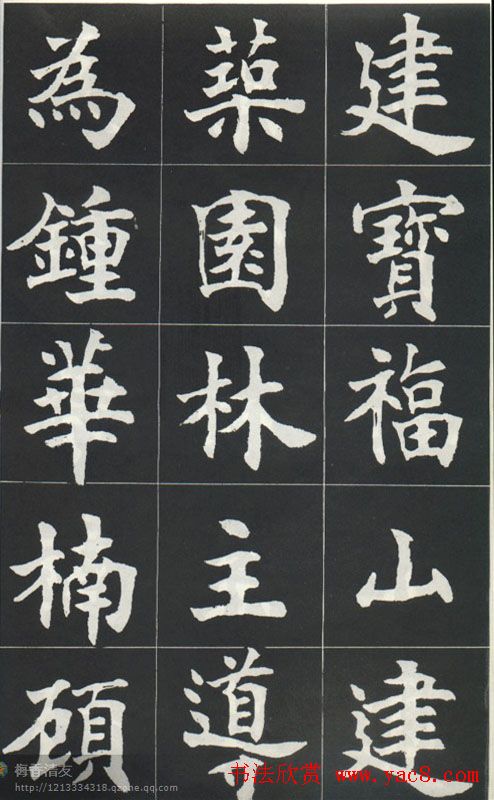 建寶福山建
築園林主導
為鍾華楠碩
梅香清友
http://1213334318.qzone.qq.com
书法欣赏
www.yac8.com